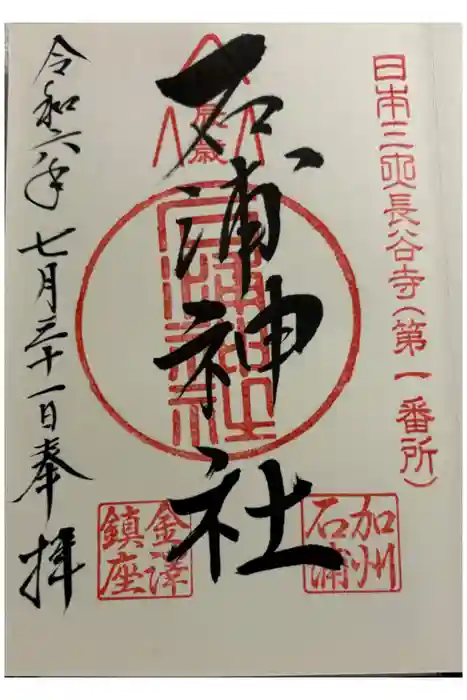 日本三央長谷寺(第一番所)
加州
石浦
辰歳
石浦神社
石浦神社
金澤
鎮座
令和六年 七月三十一日奉拝